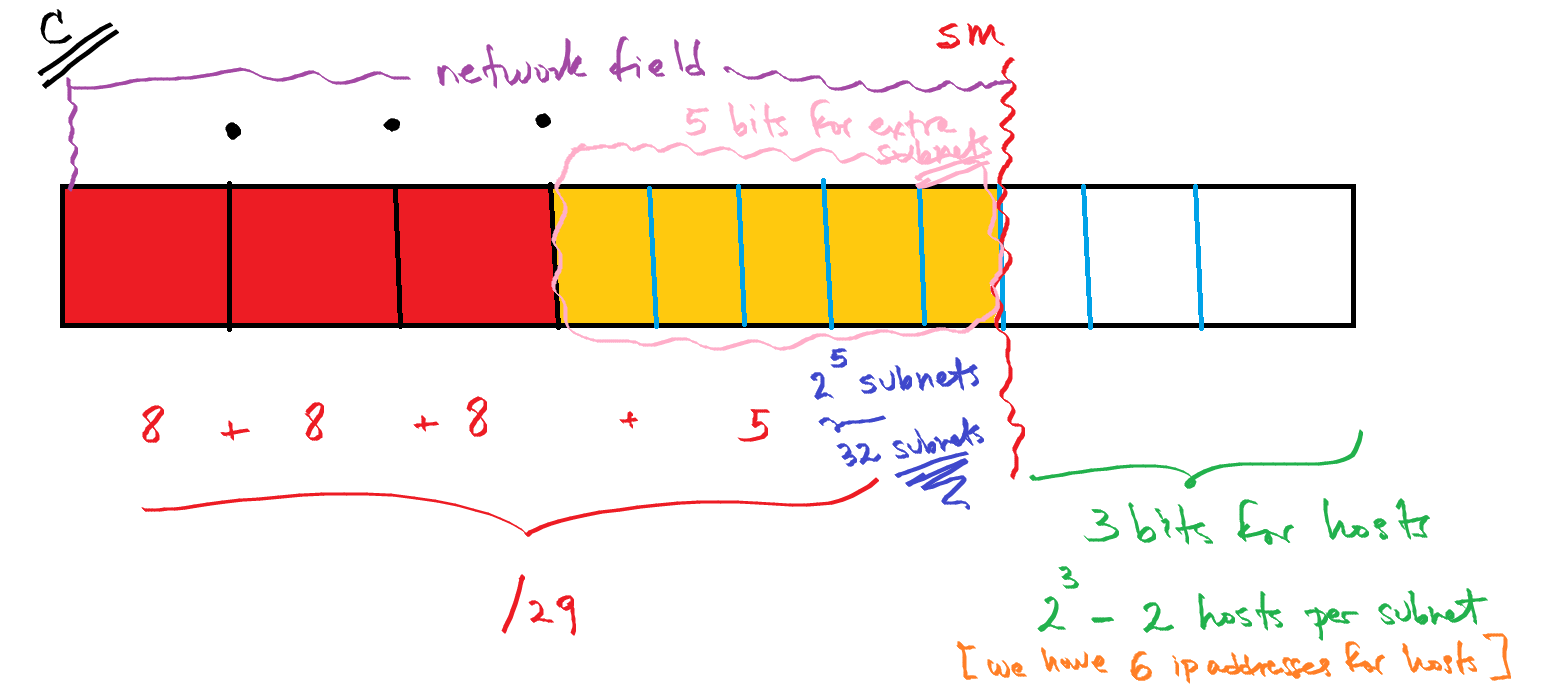 C
sm
network field
5 bits for extra
subnets
8 + 8 + 8 + 5
2^5 subnets
32 subnets
/29
3 bits for hosts
2^3 - 2 hosts per subnet
[we have 6 ip addresses for hosts]